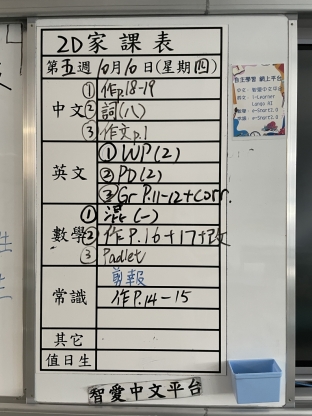 2D家課表
第五週10月10日(星期四)
中文
①作p.18-19
②詞(八)
③作文p.1
英文
①WP(2)
②PD(2)
③Gr P.11-12+corr.
數學
①混(一)
②作P.16+17+改
③Padlet
常識
剪報
作P.14-15
其它
值日生
智愛中文平台
自主學習 網上平台
中文：智愛中文平台
英文：i-Learner
Lango AI
數學：e-Smart3.0
常識：e-Smart3.0